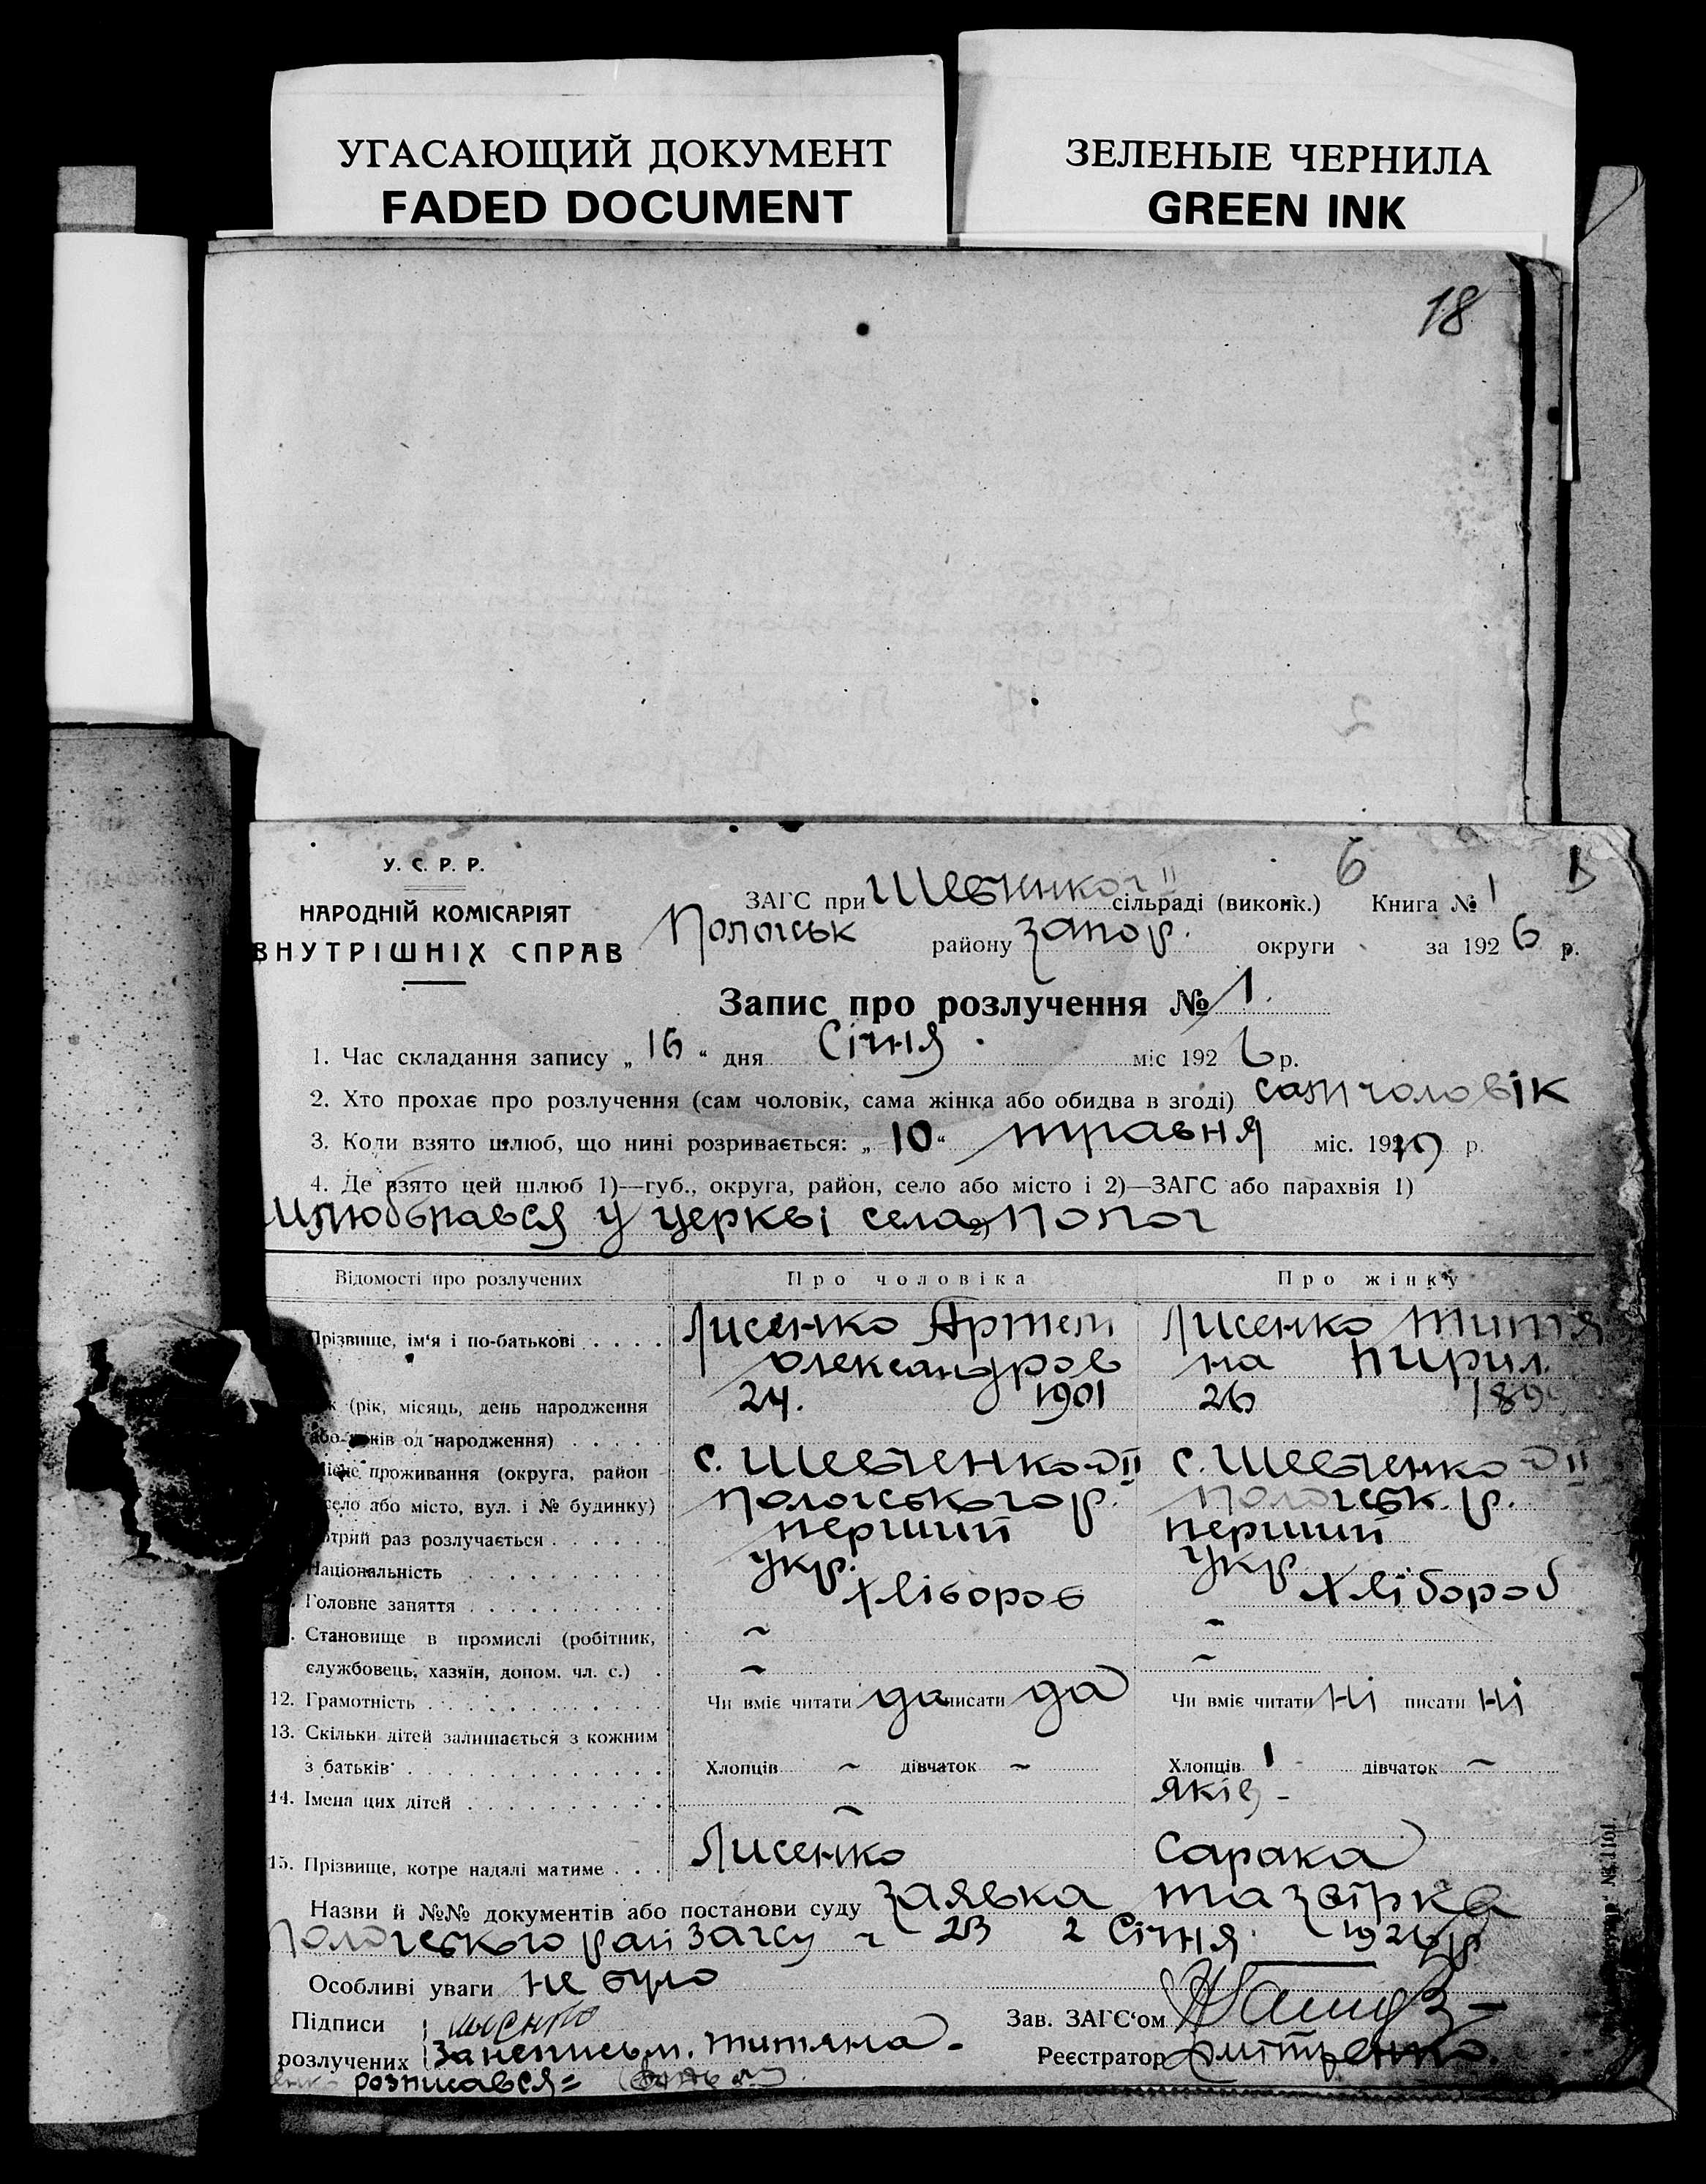 УГАСАЮЩИЙ ДОКУМЕНТ
FADED DOCUMENT
ЗЕЛЕНЫЕ ЧЕРНИЛА
GREEN INK
18
6
У. С. Р. Р.
НАРОДНІЙ КОМІСАРІЯТ
ВНУТРІШНІХ СПРАВ
ЗАГС при Шевченког II сільраді (виконк.) Книга № 1
Пологськ району Запор. округи за 1926 р.
Запис про розлучення № 1.
1. Час складання запису „16“ дня Січня міс 1926 р.
2. Хто прохає про розлучення (сам чоловік, сама жінка або обидва в згоді) сам чоловік
3. Коли взято шлюб, що нині розривається: „10“ травня міс. 1919 р.
4. Де взято цей шлюб 1)—губ., округа, район, село або місто і 2)—ЗАГС або парахвія 1)
Шлюб брався у церкві села 2) Полог
Відомості про розлучених Про чоловіка Про жінку
Прізвище, ім'я і по-батькові . . . . Лисенко Артем Лисенко Титя
Олександров на Кирил.
(рік, місяць, день народження 24. 1901 26 189
або років од народження) . . . . .
проживання (округа, район с. Шевченко II с. Шевченко II
село або місто, вул. і № будинку) Пологського р. Пологськ. р.
котрий раз розлучається . . . . . . перший перший
Національність . . . . . . . . . . укр. укр
Головне заняття . . . . . . . . . . Хлібороб Хлібороб
Становище в промислі (робітник, ~ ~
службовець, хазяїн, допом. чл. с.) . ~ ~
12. Грамотність . . . . . . . . . . . Чи вміє читати да писати да Чи вміє читати ні писати ні
13. Скільки дітей залишається з кожним
з батьків . . . . . . . . . . . . . Хлопців ~ дівчаток ~ Хлопців 1 - дівчаток ~
14. Імена цих дітей . . . . . . . . . . ~ Яків -
15. Прізвище, котре надалі матиме . . . Лисенко Сарака
Назви й №№ документів або постанови суду заявка та звірка
Пологського райЗагсу 2 Січня 1926 р
Особливі уваги не було
Підписи
розлучених За неписьм. Титяна -
розписався =
Зав. ЗАГС'ом
Реєстратор Дмитренко